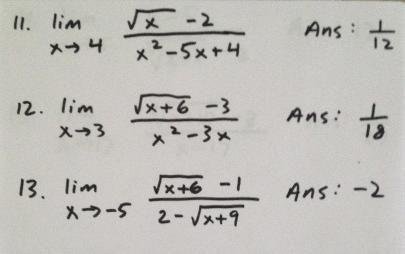 11. lim x→4 (√x - 2)/(x² - 5x + 4) Ans: 1/12
12. lim x→3 (√(x+6) - 3)/(x² - 3x) Ans: 1/18
13. lim x→-5 (√(x+6) - 1)/(2 - √(x+9)) Ans: -2